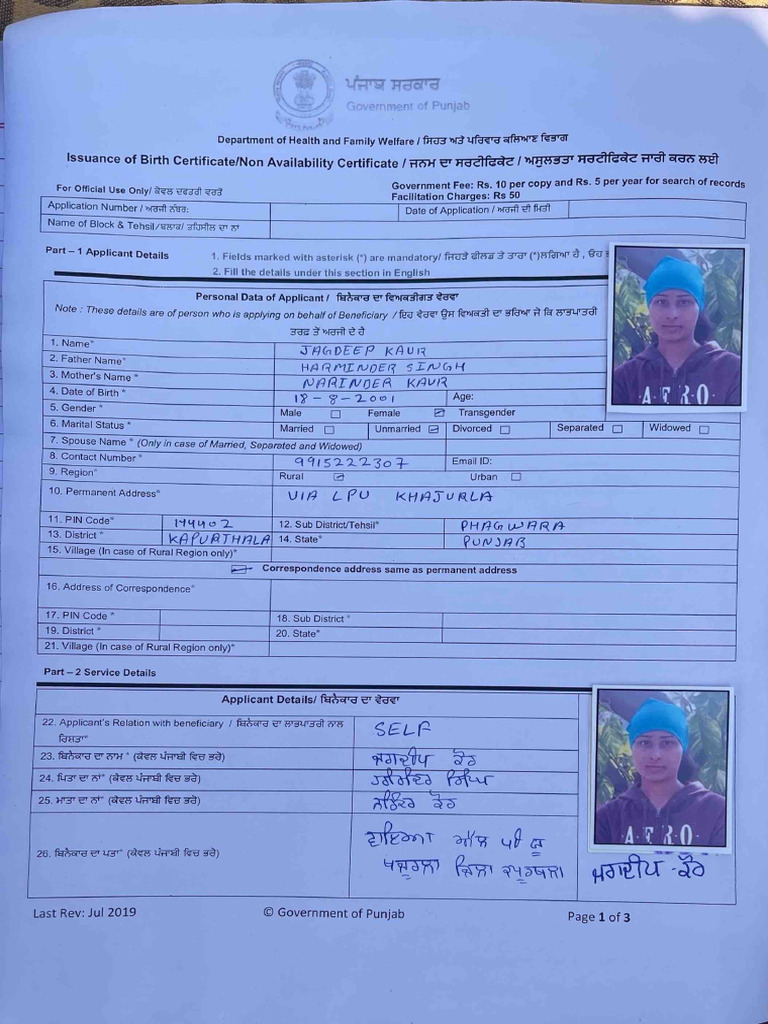 ਪੰਜਾਬ ਸਰਕਾਰ
Government of Punjab
Department of Health and Family Welfare / ਸਿਹਤ ਅਤੇ ਪਰਿਵਾਰ ਕਲਿਆਣ ਵਿਭਾਗ
Issuance of Birth Certificate/Non Availability Certificate / ਜਨਮ ਦਾ ਸਰਟੀਫਿਕੇਟ / ਅਸੁਲਭਤਾ ਸਰਟੀਫਿਕੇਟ ਜਾਰੀ ਕਰਨ ਲਈ
For Official Use Only/ ਕੇਵਲ ਦਫਤਰੀ ਵਰਤੋਂ
Government Fee: Rs. 10 per copy and Rs. 5 per year for search of records
Facilitation Charges: Rs 50
Application Number / ਅਰਜੀ ਨੰਬਰ:
Date of Application / ਅਰਜੀ ਦੀ ਮਿਤੀ
Name of Block & Tehsil/ਬਲਾਕ/ ਤਹਿਸੀਲ ਦਾ ਨਾਂ
Part – 1 Applicant Details
1. Fields marked with asterisk (*) are mandatory/ ਜਿਹੜੇ ਫੀਲਡ ਤੇ ਤਾਰਾ (*)ਲਗਿਆ ਹੈ , ਓਹ
2. Fill the details under this section in English
Personal Data of Applicant / ਬਿਨੈਕਾਰ ਦਾ ਵਿਅਕਤੀਗਤ ਵੇਰਵਾ
Note : These details are of person who is applying on behalf of Beneficiary / ਇਹ ਵੇਰਵਾ ਉਸ ਵਿਅਕਤੀ ਦਾ ਭਰਿਆ ਜੋ ਕਿ ਲਾਭਪਾਤਰੀ
ਤਰਫ਼ ਤੋਂ ਅਰਜੀ ਦੇ ਹੈ
1. Name* JAGDEEP KAUR
2. Father Name* HARMINDER SINGH
3. Mother's Name * NARINDER KAUR
4. Date of Birth * 18-8-2001 Age:
5. Gender * Male Female Transgender
6. Marital Status * Married Unmarried Divorced Separated Widowed
7. Spouse Name * (Only in case of Married, Separated and Widowed)
8. Contact Number * 9915222307 Email ID:
9. Region* Rural Urban
10. Permanent Address* VIA LPU KHAJURLA
11. PIN Code* 144402 12. Sub District/Tehsil* PHAGWARA
13. District * KAPURTHALA 14. State* PUNJAB
15. Village (In case of Rural Region only)*
Correspondence address same as permanent address
16. Address of Correspondence*
17. PIN Code * 18. Sub District *
19. District * 20. State*
21. Village (In case of Rural Region only)*
Part – 2 Service Details
Applicant Details/ ਬਿਨੈਕਾਰ ਦਾ ਵੇਰਵਾ
22. Applicant's Relation with beneficiary / ਬਿਨੈਕਾਰ ਦਾ ਲਾਭਪਾਤਰੀ ਨਾਲ
ਰਿਸ਼ਤਾ* SELF
23. ਬਿਨੈਕਾਰ ਦਾ ਨਾਮ * (ਕੇਵਲ ਪੰਜਾਬੀ ਵਿਚ ਭਰੋ) ਜਗਦੀਪ ਕੌਰ
24. ਪਿਤਾ ਦਾ ਨਾਂ* (ਕੇਵਲ ਪੰਜਾਬੀ ਵਿਚ ਭਰੋ) ਹਰਮਿੰਦਰ ਸਿੰਘ
25. ਮਾਤਾ ਦਾ ਨਾਂ* (ਕੇਵਲ ਪੰਜਾਬੀ ਵਿਚ ਭਰੋ) ਨਰਿੰਦਰ ਕੌਰ
26. ਬਿਨੈਕਾਰ ਦਾ ਪਤਾ* (ਕੇਵਲ ਪੰਜਾਬੀ ਵਿਚ ਭਰੋ) ਵਾਇਆ ਐੱਲ ਪੀ ਯੂ
ਖਜੂਰਲਾ ਜ਼ਿਲਾ ਕਪੂਰਥਲਾ
AERO
AERO
ਜਗਦੀਪ ਕੌਰ
Last Rev: Jul 2019 © Government of Punjab Page 1 of 3